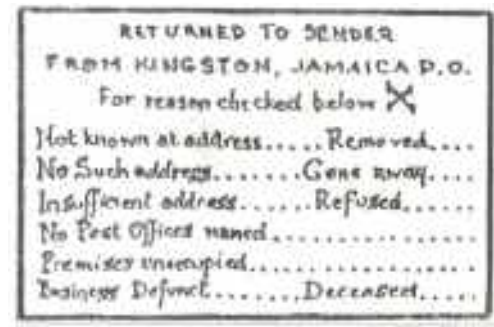 RETURNED TO SENDER
FROM KINGSTON, JAMAICA P.O.
For reason checked below X
Not known at address.....Removed....
No Such address.......Gone away....
Insufficient address......Refused......
No Post Offices named.............
Premises unoccupied...............
Business Defunct.......Deceased.....